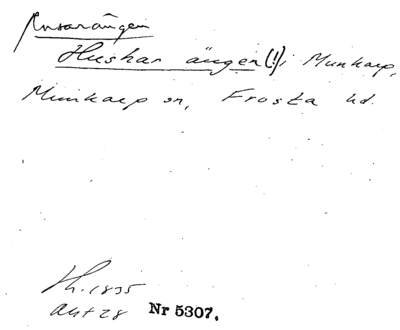 Husarängen
Hushar ängen (!) i Munkarp,
Munkarp sn, Frosta hd.
Th. 1835
akt 28 Nr 5307.